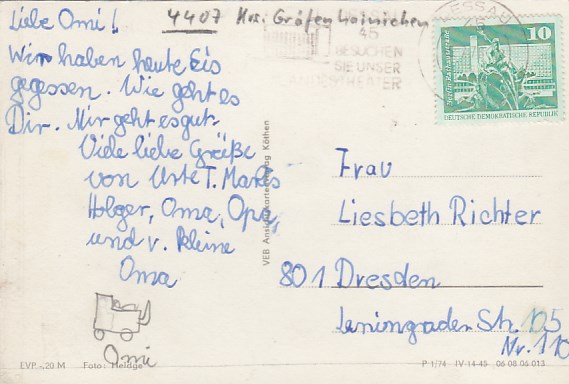 Liebe Omi!
4407 Krs. Gräfenhainichen
Wir haben heute Eis
gegessen. Wie geht es
Dir. Mir geht es gut
Viele liebe Grüße
von Ute T. Marks
Holger, Oma, Opa,
und v. kleine
Oma
Omi
DESSAU
45
BESUCHEN
SIE UNSER
LANDESTHEATER
10
DEUTSCHE DEMOKRATISCHE REPUBLIK
VEB Ansichtskartenverlag Köthen
Frau
Liesbeth Richter
801 Dresden
Leningrader Str.
Nr. 110
EVP -,20 M Foto: Heldge
P 1/74 IV-14-45 06 08 06 013